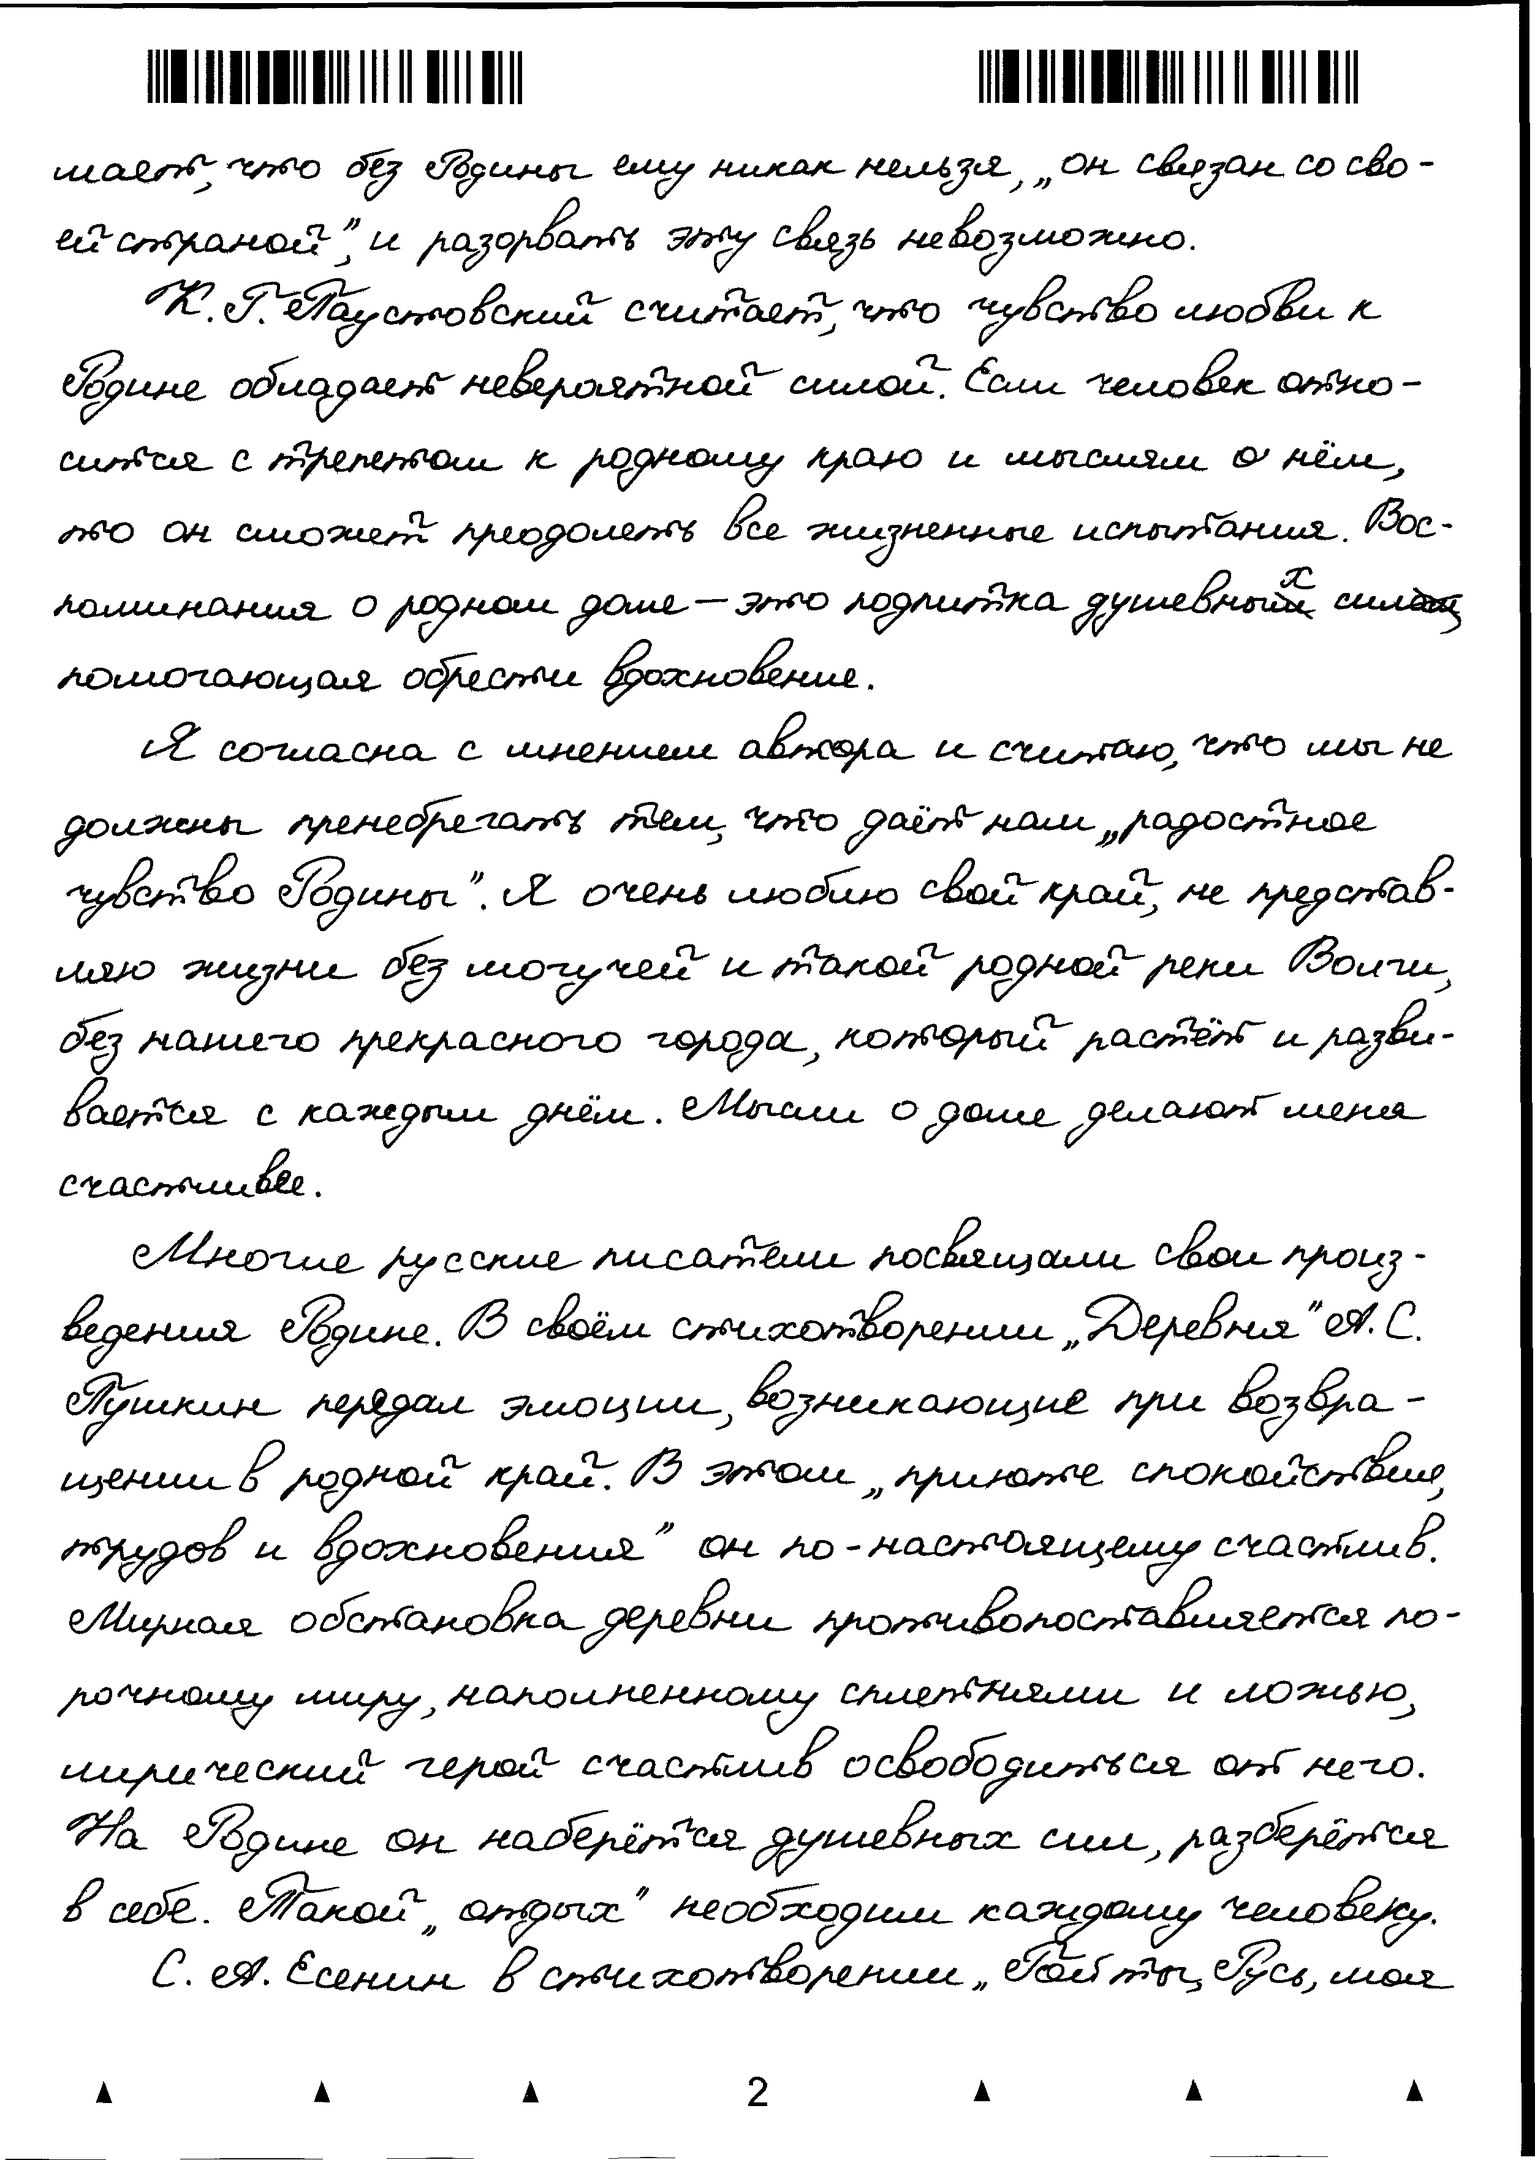 мает, что без Родины ему никак нельзя, „он связан со сво-
ей страной", и разорвать эту связь невозможно.
К. Г. Паустовский считает, что чувство любви к
Родине обладает невероятной силой. Если человек отно-
сится с трепетом к родному краю и мыслям о нём,
то он сможет преодолеть все жизненные испытания. Вос-
поминания о родном доме — это подпитка душевных сил,
помогающая обрести вдохновение.
Я согласна с мнением автора и считаю, что мы не
должны пренебрегать тем, что даёт нам „радостное
чувство Родины". Я очень люблю свой край, не представ-
ляю жизни без могучей и такой родной реки Волги,
без нашего прекрасного города, который растёт и разви-
вается с каждым днём. Мысли о доме делают меня
счастливее.
Многие русские писатели посвящали свои произ-
ведения Родине. В своём стихотворении „Деревня" А. С.
Пушкин передал эмоции, возникающие при возвра-
щении в родной край. В этом „приюте спокойствия,
трудов и вдохновения" он по-настоящему счастлив.
Мирная обстановка деревни противопоставляется по-
рочному миру, наполненному сплетнями и ложью,
лирический герой счастлив освободиться от него.
На Родине он наберётся душевных сил, разберётся
в себе. Такой „отдых" необходим каждому человеку.
С. А. Есенин в стихотворении „Гой ты, Русь, моя
2